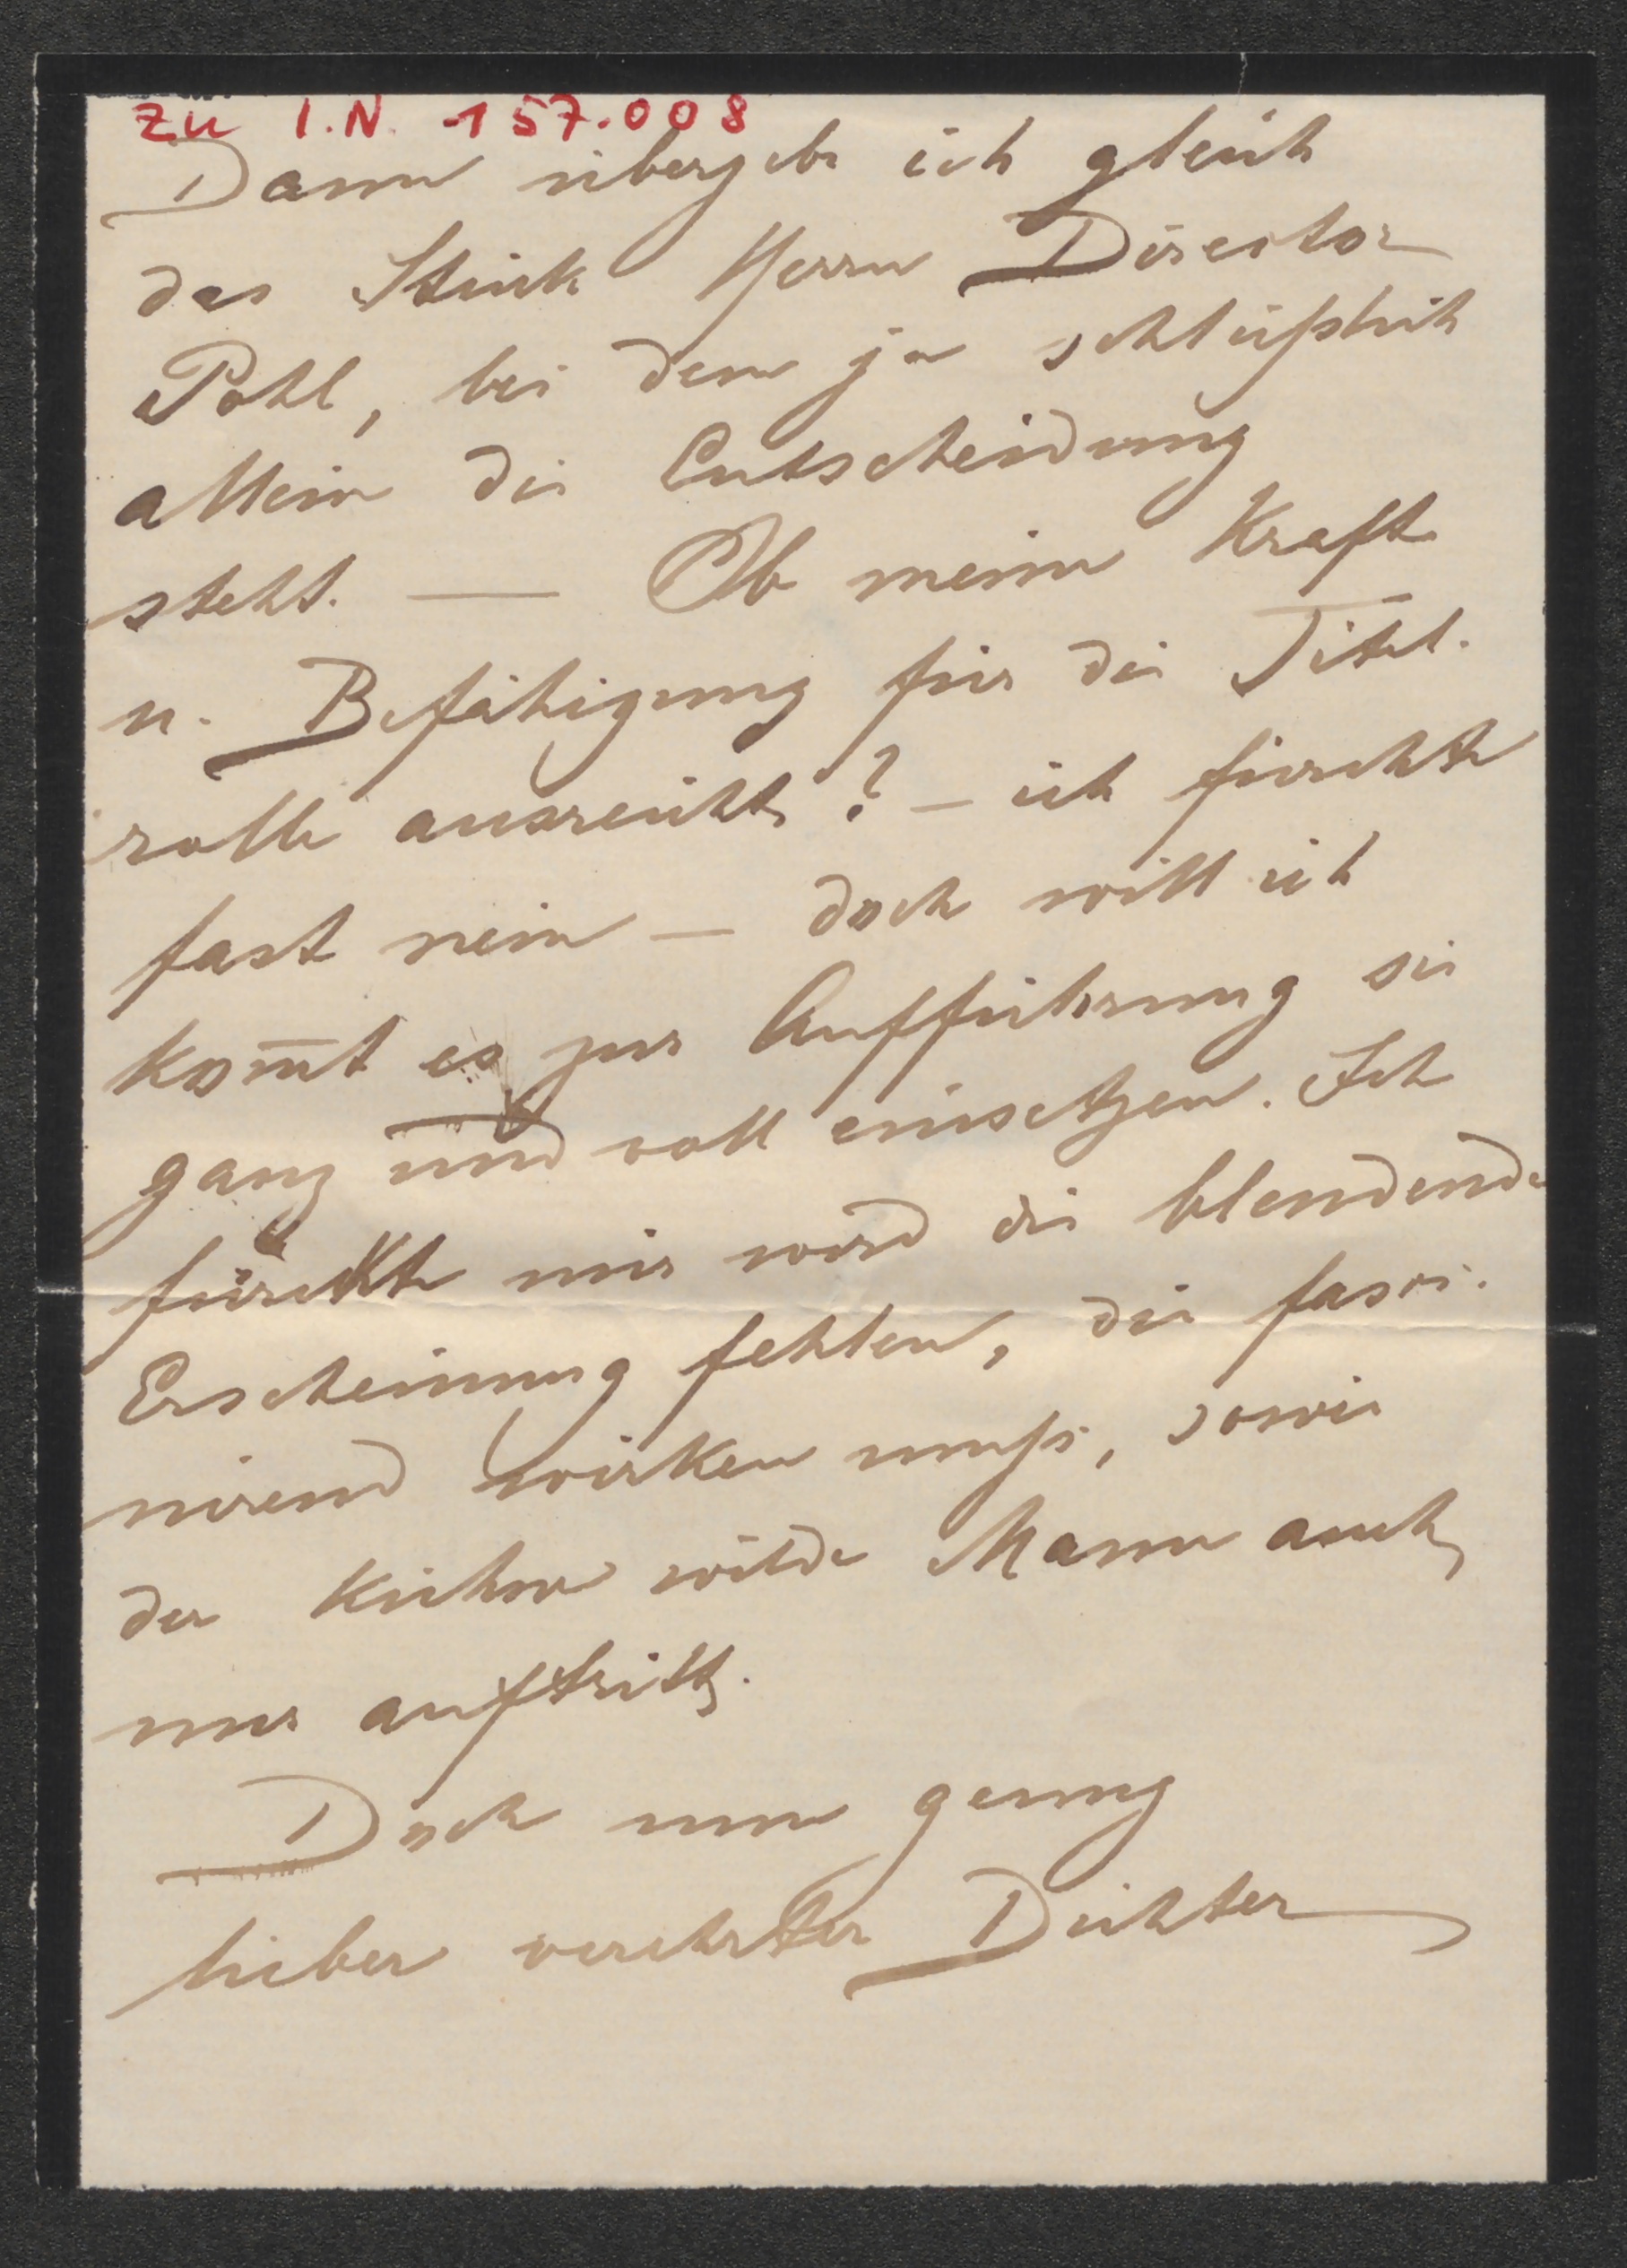 zu I.N. 157.008
Dann übergebe ich gleich
das Stück Herrn Director
Pohl, bei dem ja schließlich
allein die Entscheidung
steht. — Ob meine Kraft
u. Befähigung für die Titel-
rolle ausreicht? – ich fürchte
fast nein – doch will ich
kom̄t es zur Aufführung sie
ganz und voll einsetzen. Ich
fürchte mir wird die blendende
Erscheinung fehlen, die fasci-
nirend wirken muß, sowie
der kühne wilde Mann auch
nur auftritt.
Doch nun genug
lieber verehrter Dichter